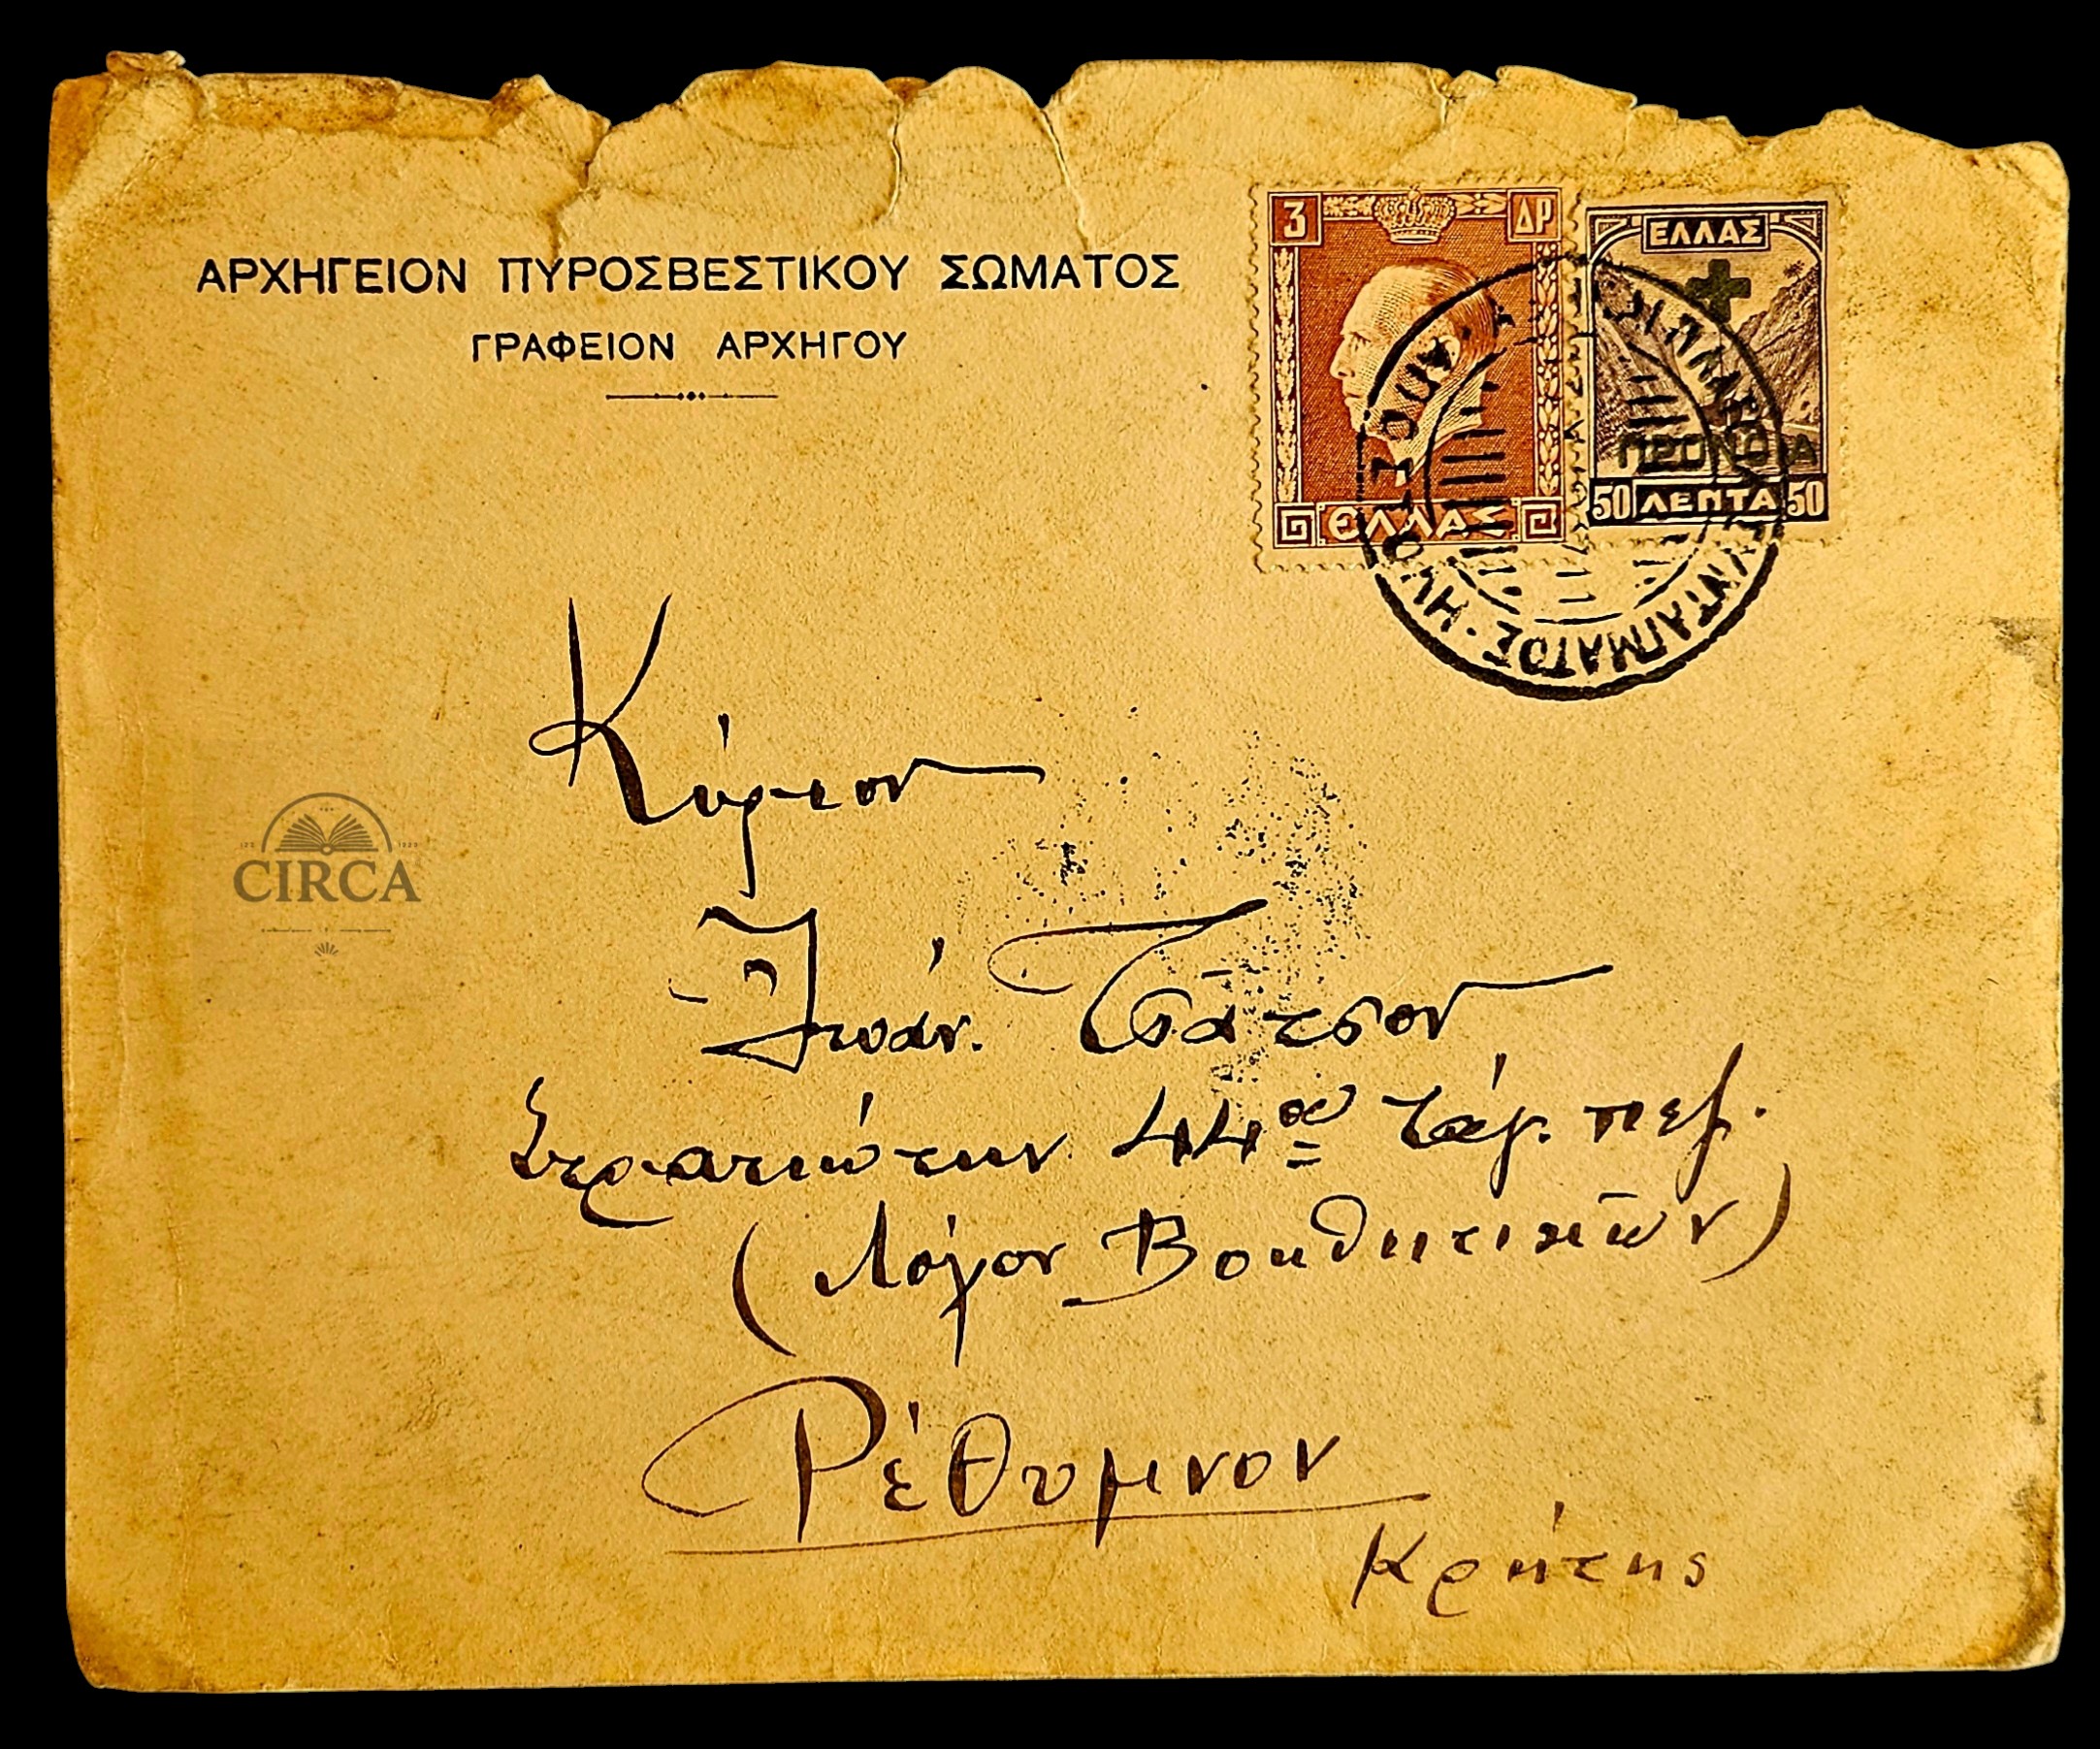 ΑΡΧΗΓΕΙΟΝ ΠΥΡΟΣΒΕΣΤΙΚΟΥ ΣΩΜΑΤΟΣ
ΓΡΑΦΕΙΟΝ ΑΡΧΗΓΟΥ
3 ΔΡ
ΕΛΛΑΣ
ΕΛΛΑΣ
ΠΡΟΝΟΙΑ
50 ΛΕΠΤΑ 50
ΣΥΝΤΑΓΜΑΤΟΣ
Κύριον
CIRCA
Ιωάν. Τσάτσον
Στρατιώτην 44ου τάγ. πεζ.
(Λόχον Βοηθητικῶν)
Ρέθυμνον
Κρήτης